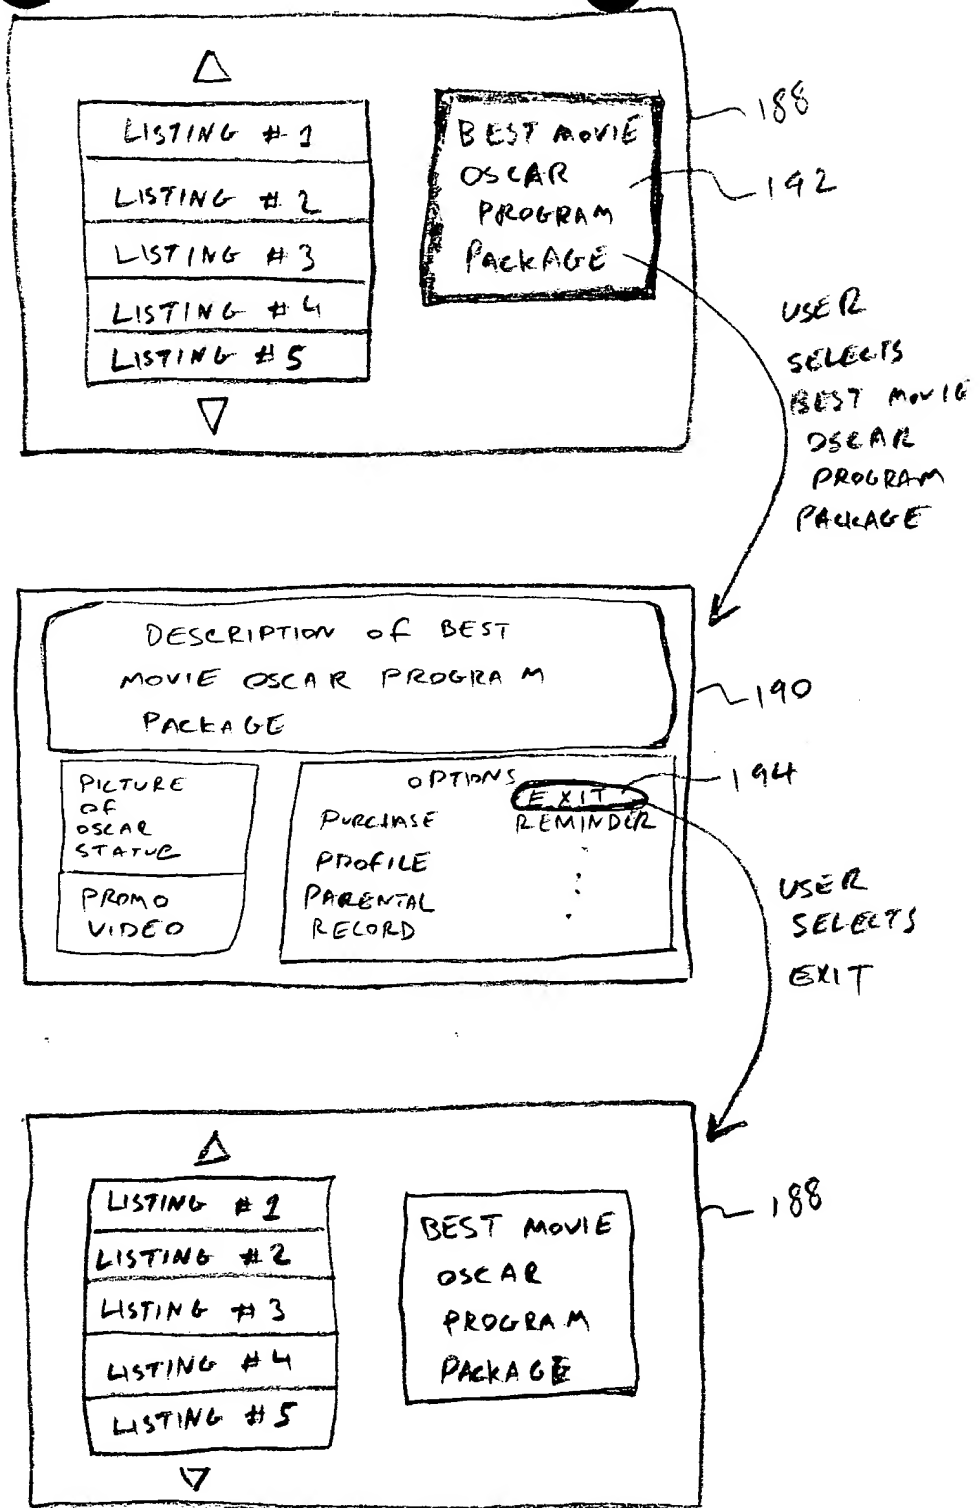 LISTING #1
LISTING #2
LISTING #3
LISTING #4
LISTING #5
BEST MOVIE
OSCAR
PROGRAM
PACKAGE
188
192
USER
SELECTS
BEST MOVIE
OSCAR
PROGRAM
PACKAGE
DESCRIPTION OF BEST
MOVIE OSCAR PROGRAM
PACKAGE
190
PICTURE
OF
OSCAR
STATUE
PROMO
VIDEO
OPTIONS
EXIT
PURCHASE REMINDER
PROFILE
PARENTAL
RECORD
194
USER
SELECTS
EXIT
LISTING #1
LISTING #2
LISTING #3
LISTING #4
LISTING #5
BEST MOVIE
OSCAR
PROGRAM
PACKAGE
188